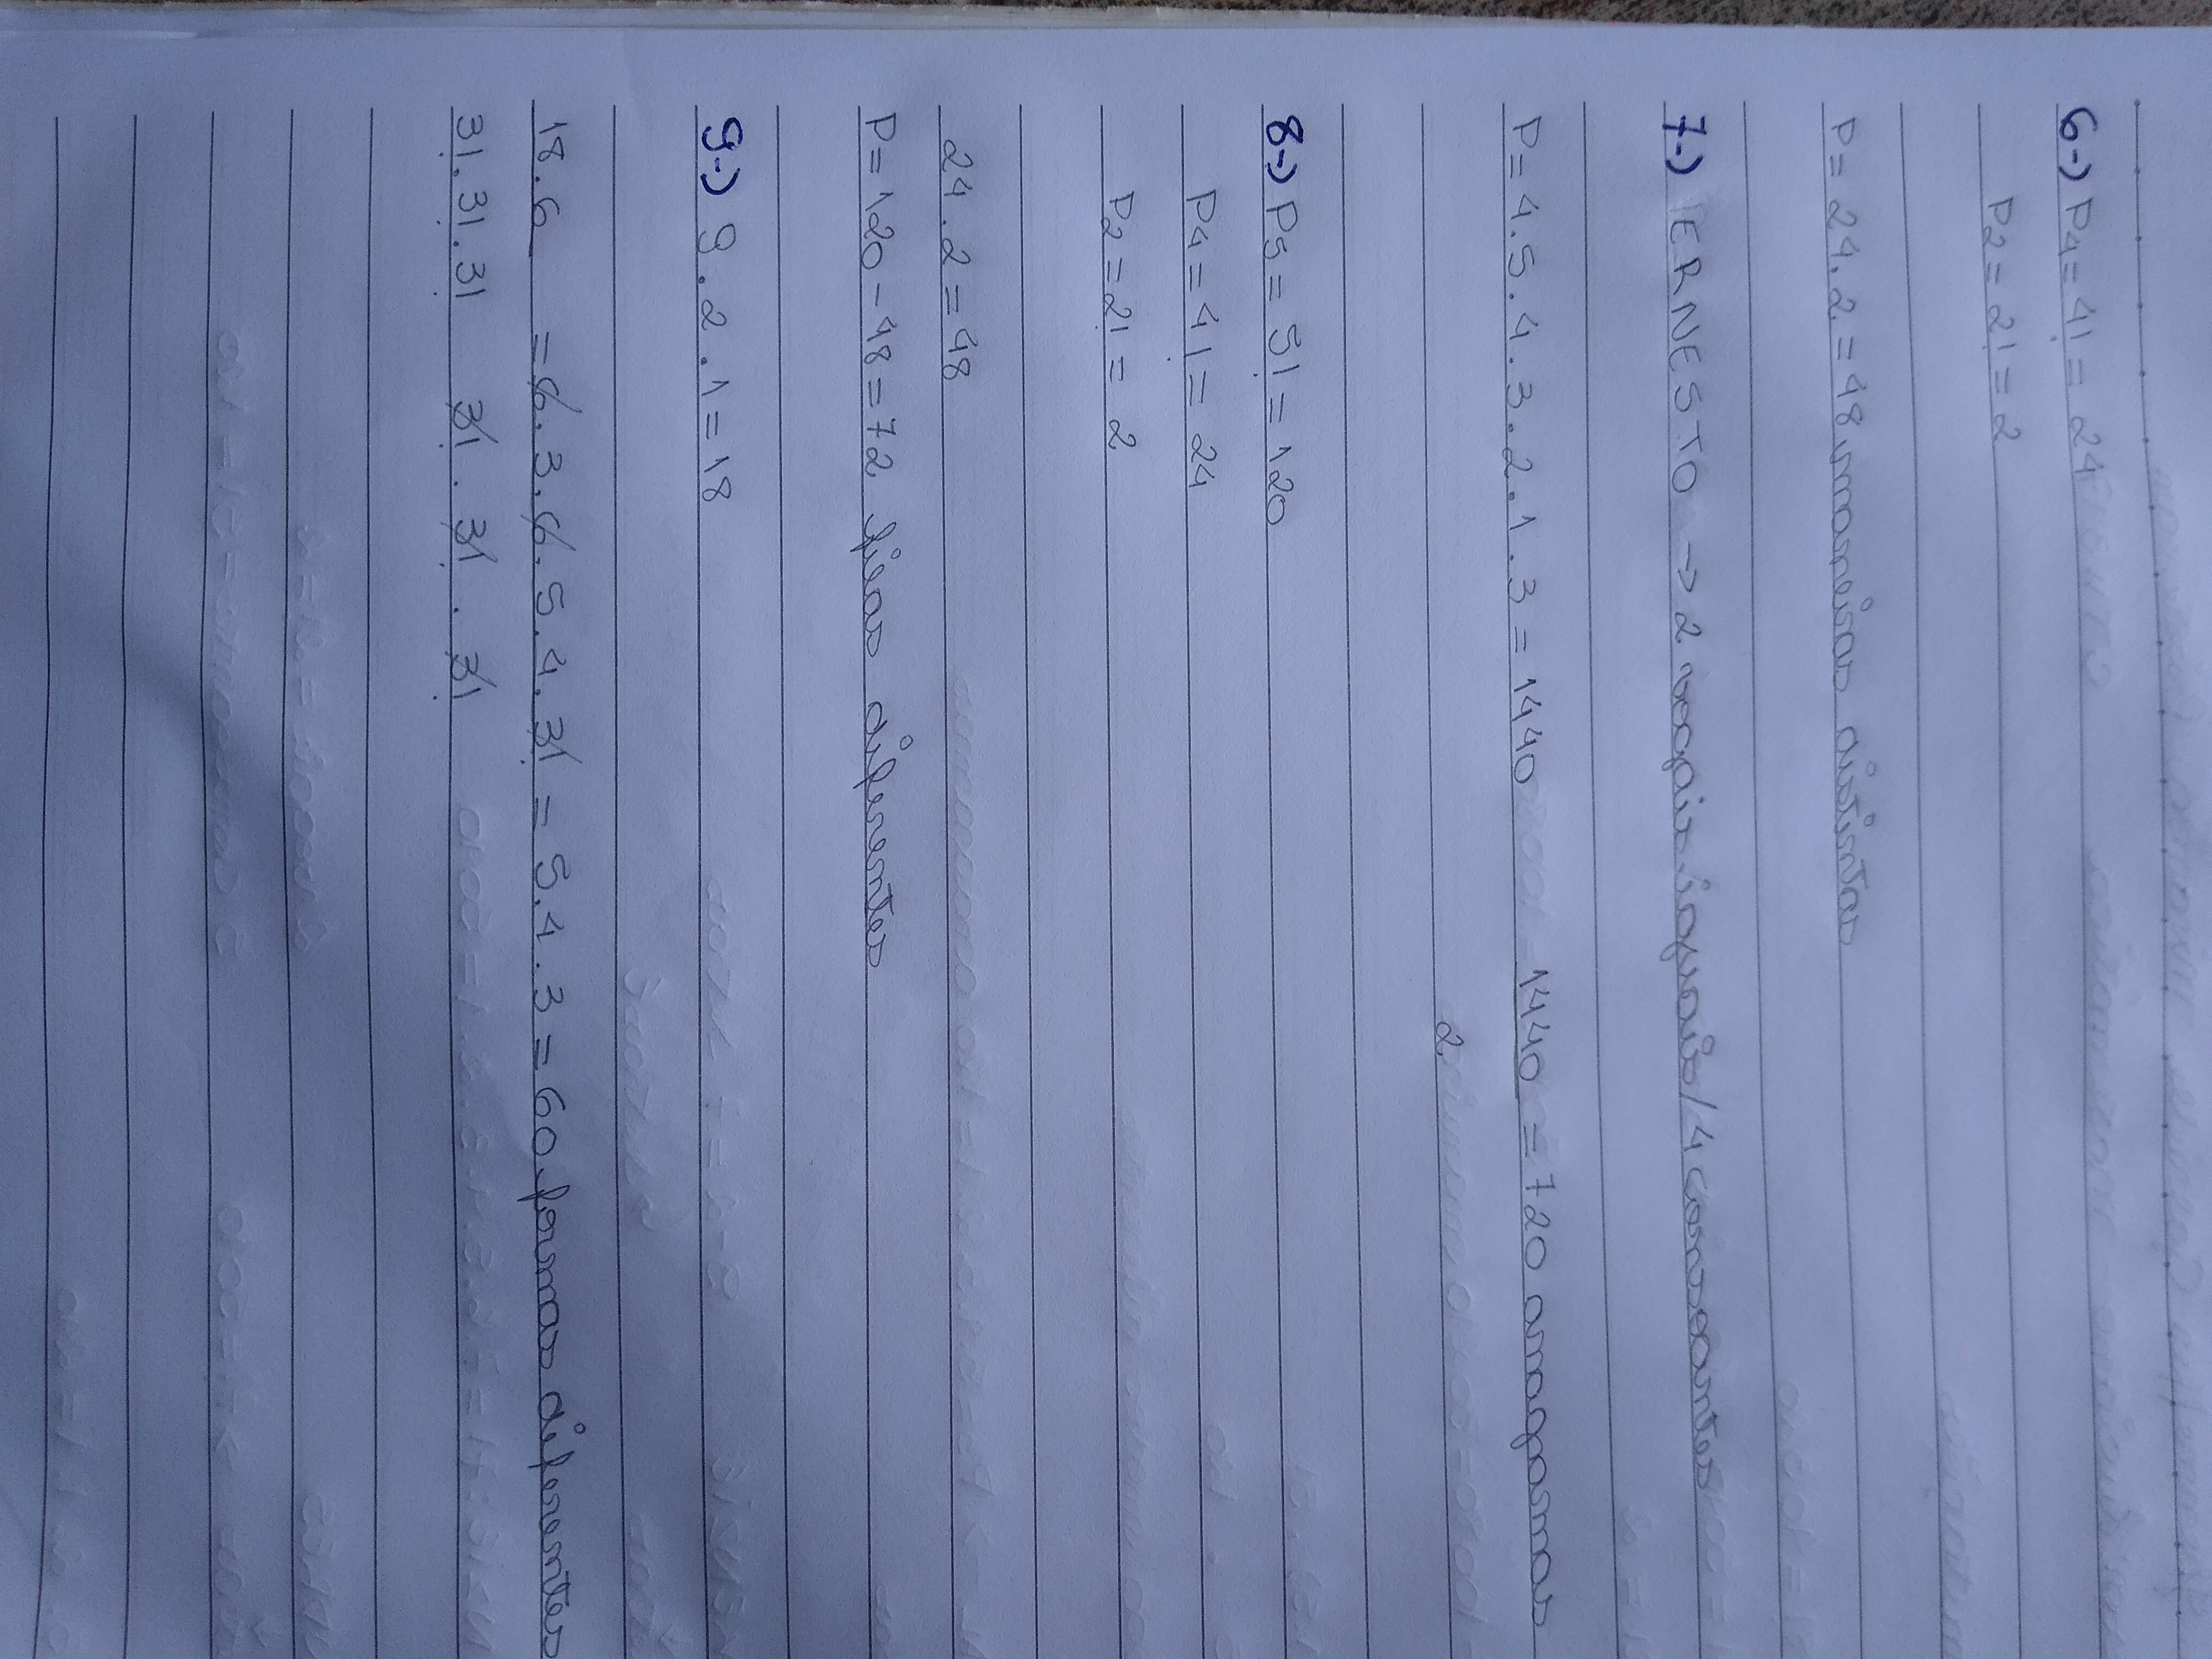 6-) P4 = 4! = 24
P2 = 2! = 2
P = 24 . 2 = 48 maneiras distintas
7-) ERNESTO -> 2 vogais iguais / 4 consoantes
P = 4 . 5 . 4 . 3 . 2 . 1 . 3 = 1440 1440 = 720 anagramas
2
8-) P5 = 5! = 120
P4 = 4! = 24
P2 = 2! = 2
24 . 2 = 48
P = 120 - 48 = 72 filas diferentes
9-) 9 . 2 . 1 = 18
18 . 6 = 6 . 3 . 6 . 5 . 4 . 3! = 5 . 4 . 3 = 60 formas diferentes
3! . 3! . 3! 3! . 3! . 3!